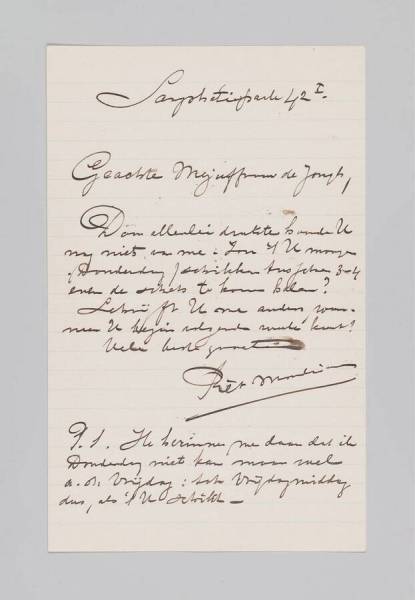 Sarphatipark 42 I.
Geachte Mejuffrouw de Jongh,
Door allerlei drukte hoorde U
nog niet van me. Zou 't U morgen
(Donderdag) schikken tusschen 3-4
even de schets te komen
Schrijft U me anders wan-
neer U begin volgende week kunt?
Vele beste groeten
Piet Mondriaan
P.S. Ik herinner me daar dat ik
Donderdag niet kan maar wel
a.s. Vrijdag: dus Vrijdagmiddag
dus, als 't U schikt –